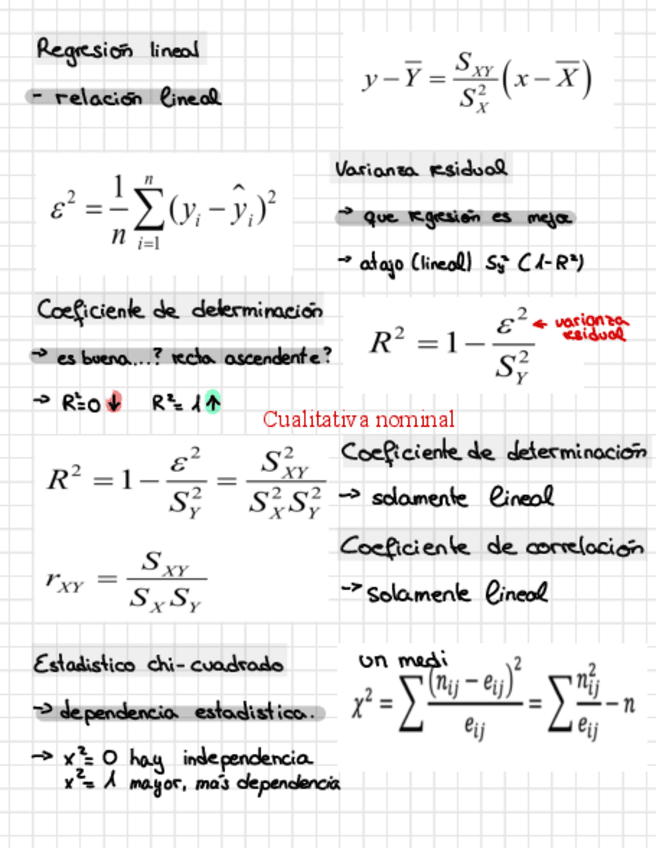 Regresión lineal
- relación lineal
y − Ȳ = S_XY / S²_X (x − X̄)
ε² = 1/n ∑_{i=1}^{n} (y_i − ŷ_i)²
Varianza residual
→ que regresión es mejor
→ atajo (lineal) Sy² (1-R²)
Coeficiente de determinación
→ es buena...? recta ascendente?
→ R²=0 ↓ R²= 1 ↑
R² = 1 − ε² / S²_Y ← varianza
residual
Cualitativa nominal
R² = 1 − ε² / S²_Y = S²_XY / S²_X S²_Y
Coeficiente de determinación
→ solamente lineal
r_XY = S_XY / S_X S_Y
Coeficiente de correlación
→ solamente lineal
Estadistico chi-cuadrado
→ dependencia estadistica.
→ x²= 0 hay independencia
x²= 1 mayor, más dependencia
un medi
χ² = ∑ (n_ij − e_ij)² / e_ij = ∑ n²_ij / e_ij − n